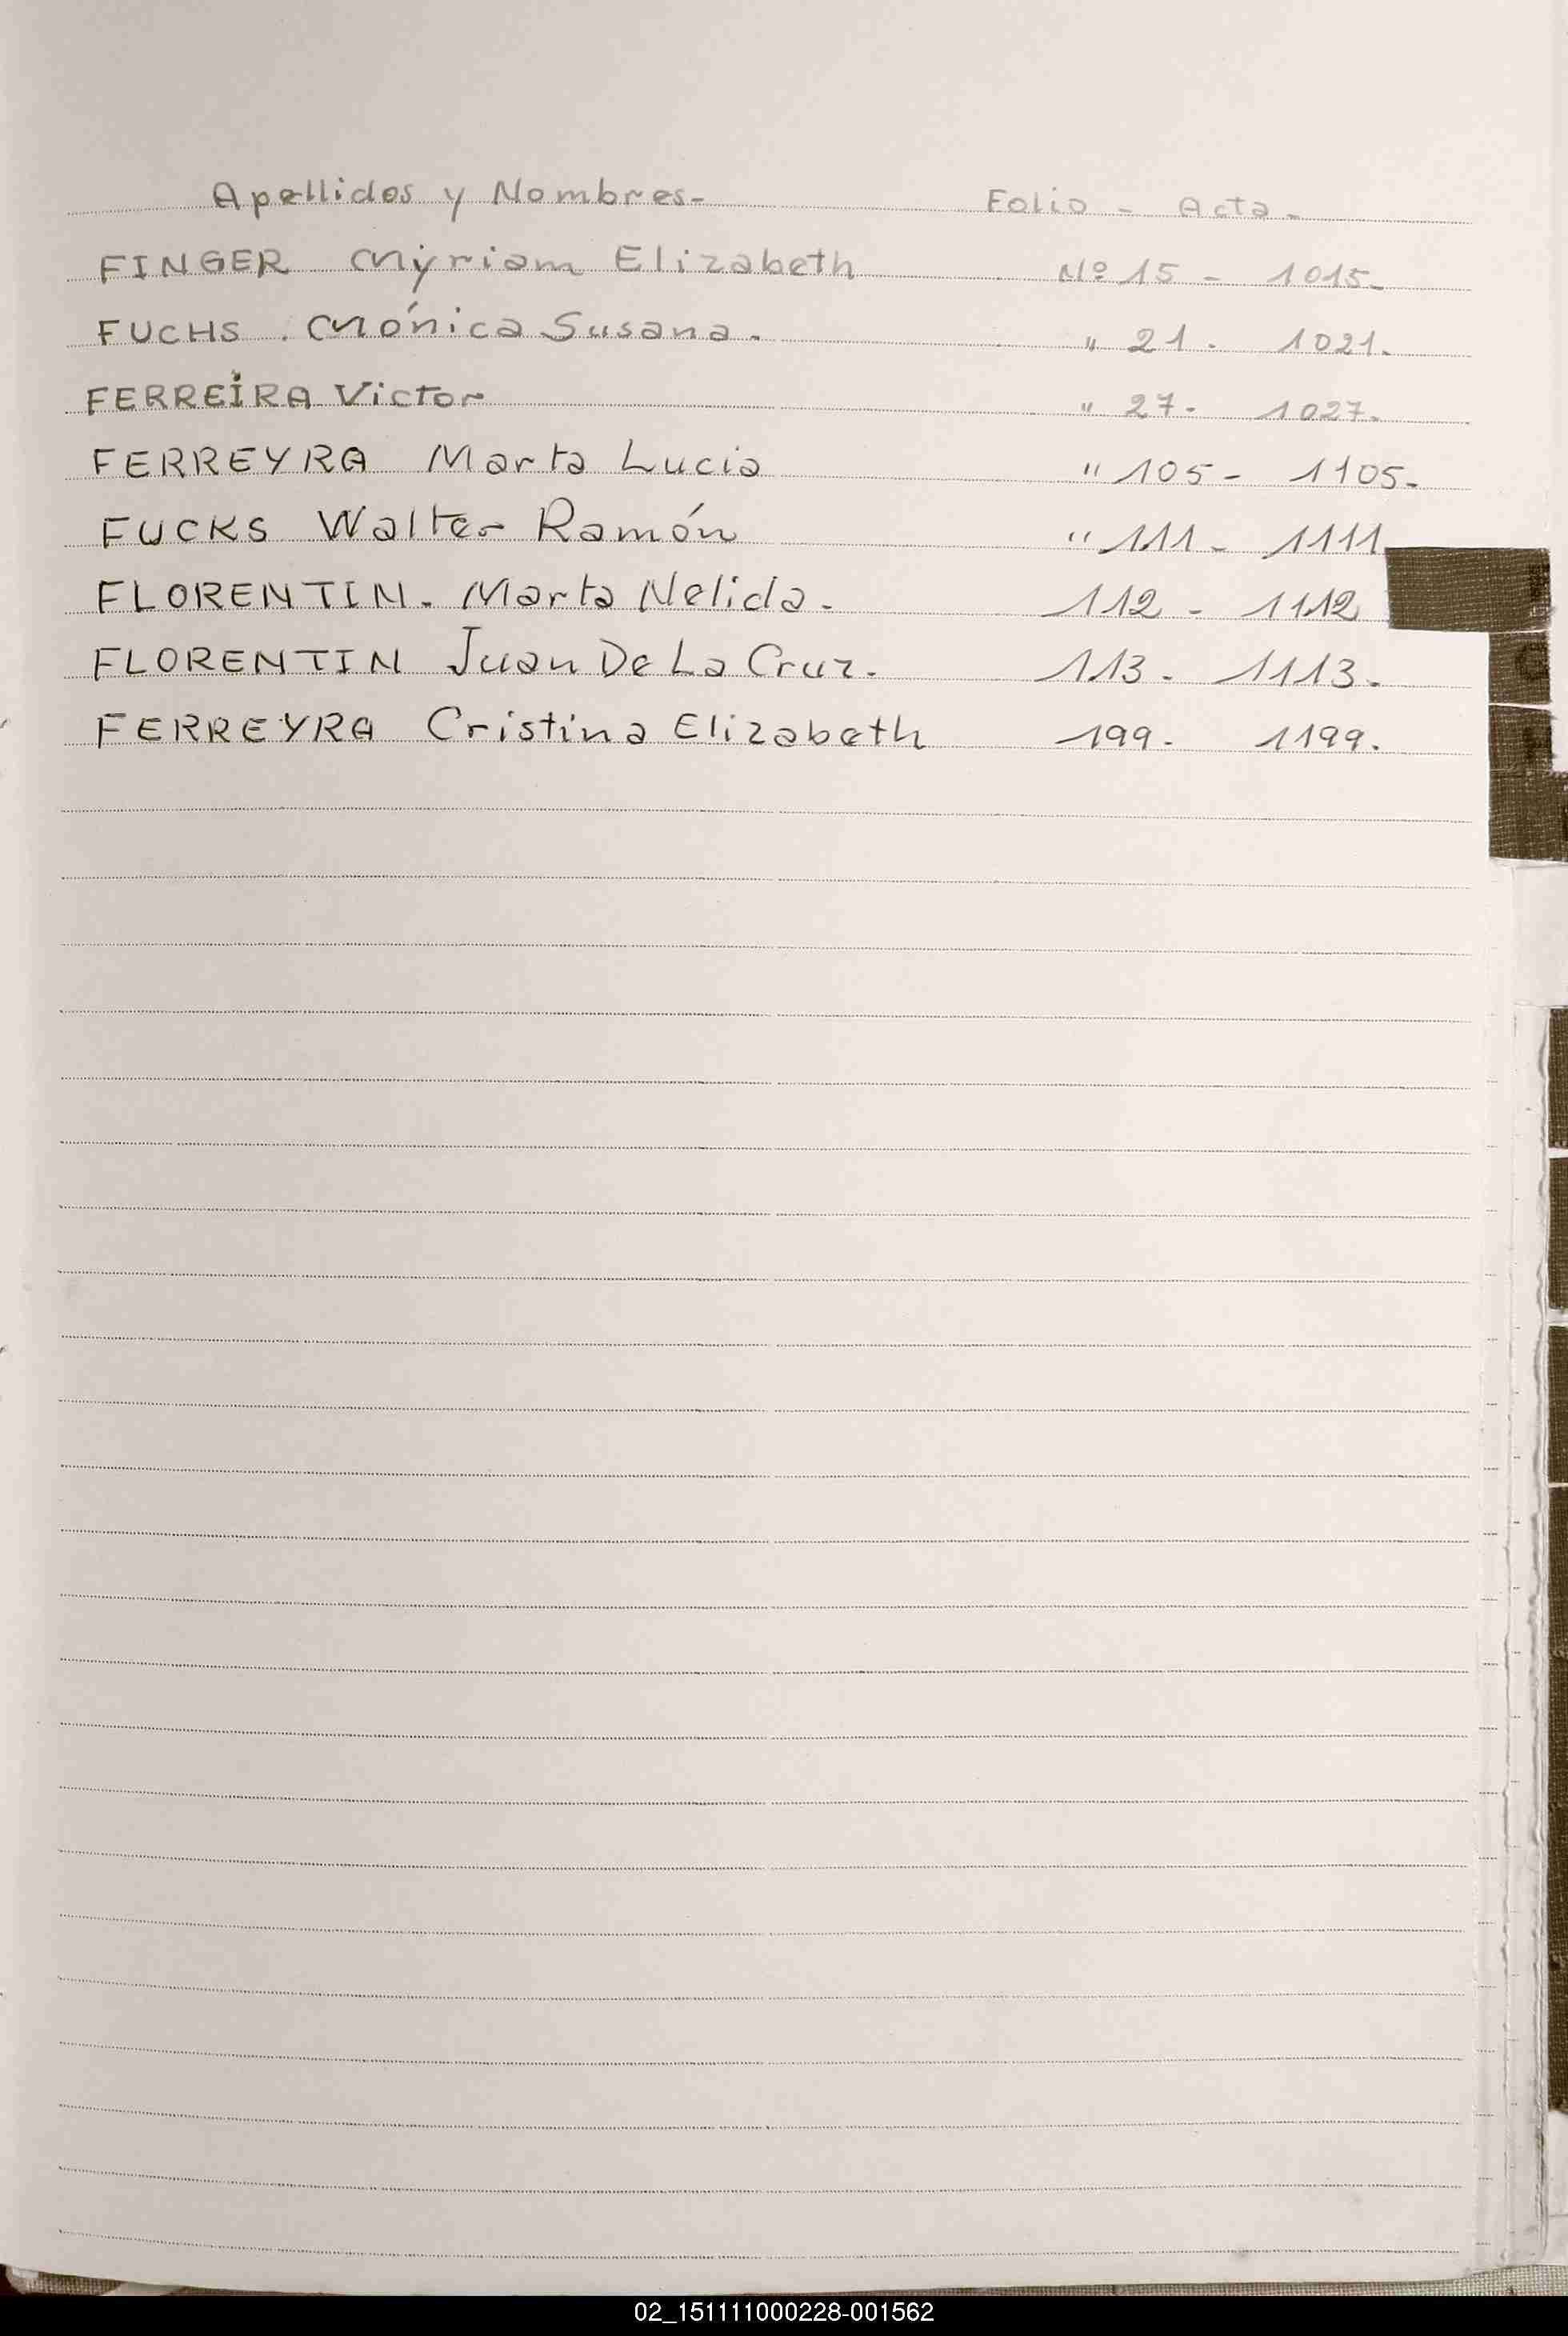 Apellidos y Nombres- Folio - Acta-
FINGER Myriam Elizabeth Nº 15 - 1015-
FUCHS. Mónica Susana. " 21. 1021.
FERREIRA Victor " 27- 1027-
FERREYRA Marta Lucia " 105- 1105-
FUCKS Walter Ramón " 111- 1111
FLORENTIN. Marta Nelida. 112 - 1112
FLORENTIN Juan De La Cruz. 113. 1113.
FERREYRA Cristina Elizabeth 199. 1199.
02_151111000228-001562